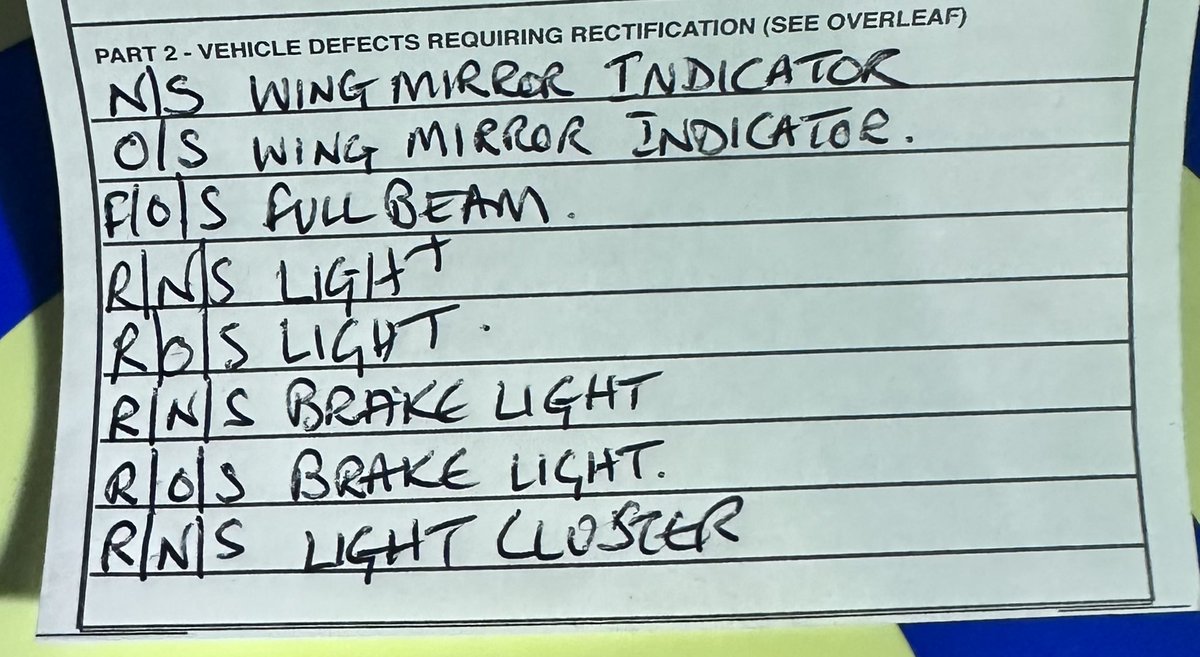 PART 2 - VEHICLE DEFECTS REQUIRING RECTIFICATION (SEE OVERLEAF)
N/S WING MIRROR INDICATOR
O/S WING MIRROR INDICATOR.
F/O/S FULL BEAM.
R/N/S LIGHT
R/O/S LIGHT.
R/N/S BRAKE LIGHT
R/O/S BRAKE LIGHT.
R/N/S LIGHT CLUSTER